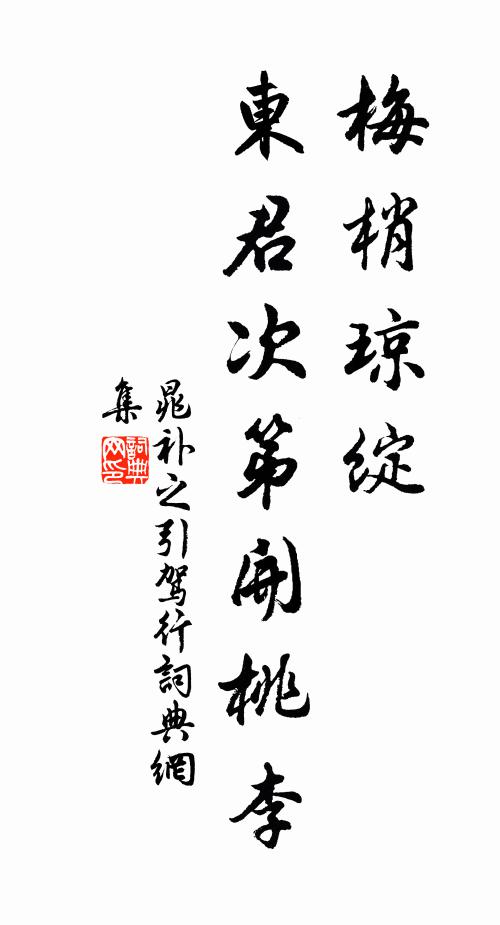 梅梢琼綻
東君次第開桃李
晁补之引驾行詞典網
集
詞典
网印